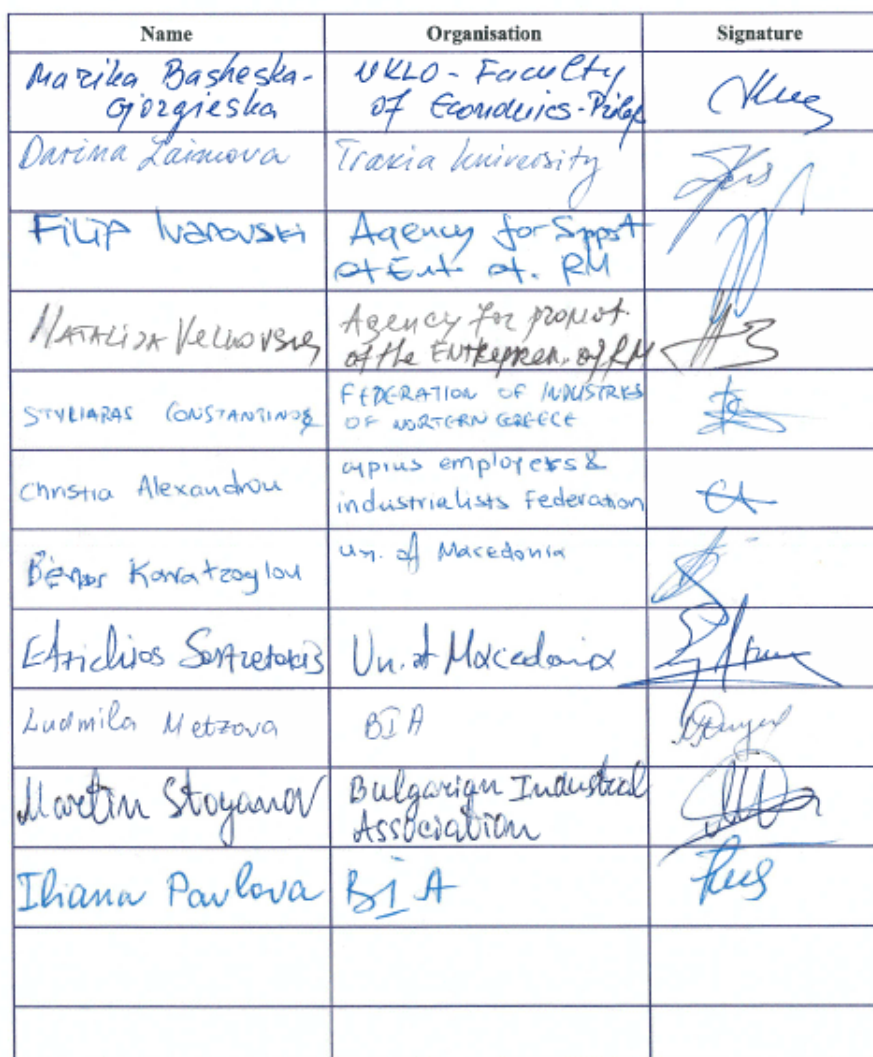 Name Organisation Signature
Marika Basheska- UKLO - Faculty
Gjorgieska of Economics - Prilep
Darina Zaimova Trakia University
Filip Ivanovski Agency for Support
of Ent. of. RM
Natalija Velkovska Agency for promot.
of the Entrepren. of RM
STYLIARAS CONSTANTINOS FEDERATION OF INDUSTRIES
OF NORTERN GREECE
cyprus employers &
Christia Alexandrou industrialists Federation
un. of Macedonia
Karatzoglou
Un. of Macedonia
Ludmila Metzova BIA
Martin Stoyanov Bulgarian Industrial
Association
Iliana Pavlova BIA